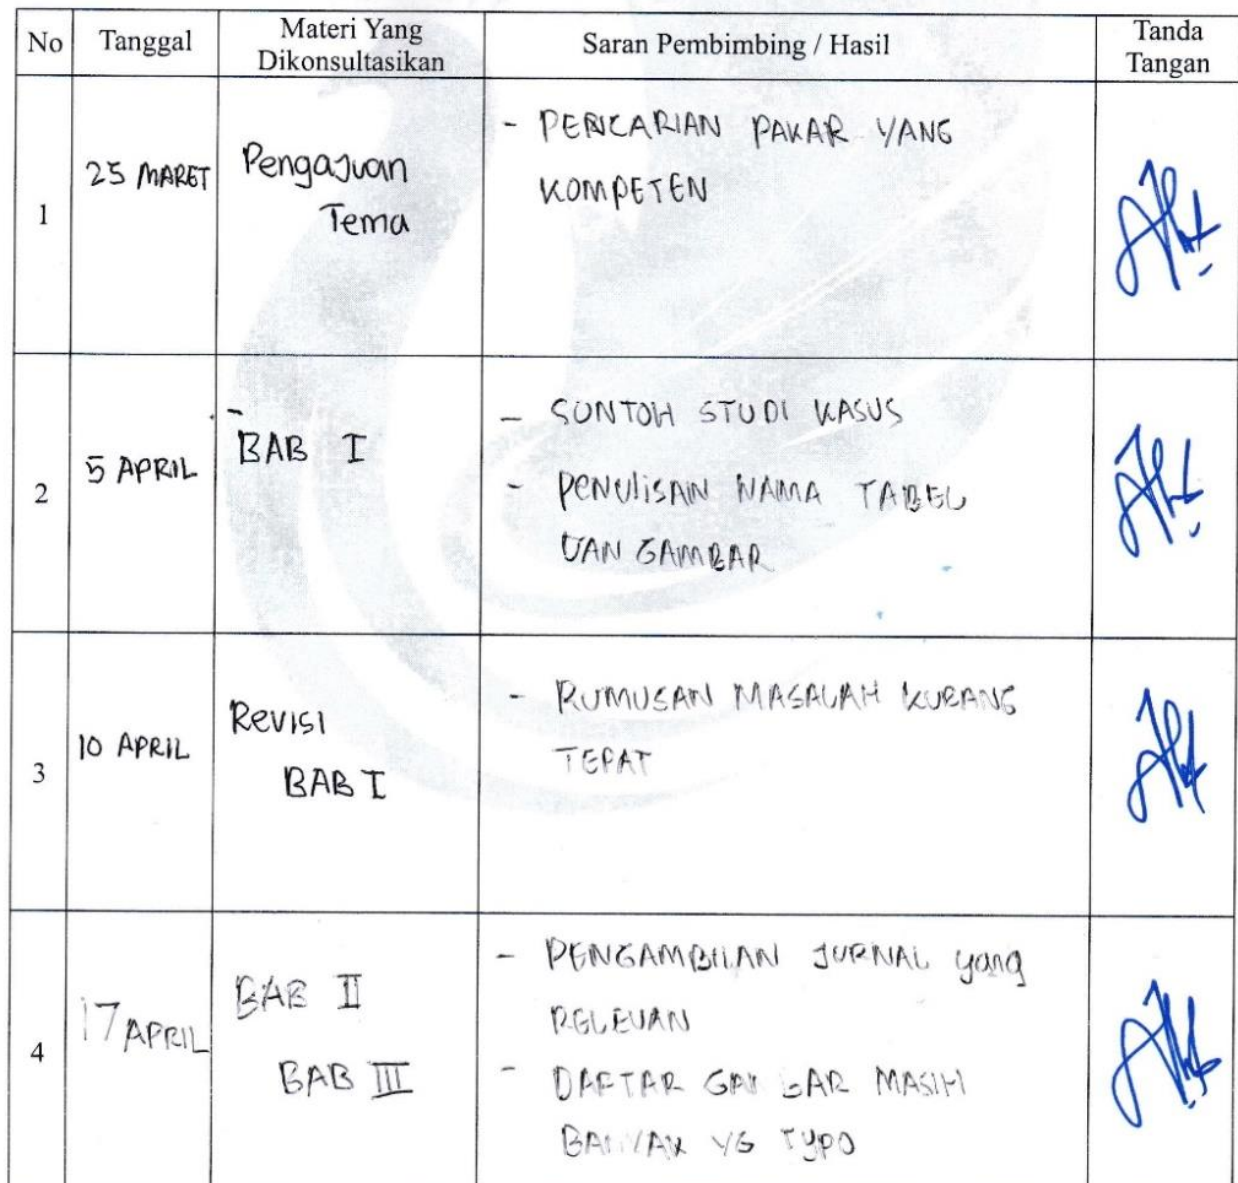 No
Tanggal
Materi Yang
Dikonsultasikan
Saran Pembimbing / Hasil
Tanda
Tangan
1
25 MARET
Pengajuan
Tema
- PENCARIAN PAKAR YANG
KOMPETEN
2
5 APRIL
- BAB I
- SONTOH STUDI KASUS
- PENULISAN NAMA TABEL
DAN GAMBAR
3
10 APRIL
Revisi
BAB I
- RUMUSAN MASALAH KURANG
TEPAT
4
17 APRIL
BAB II
BAB III
- PENGAMBILAN JURNAL yang
RELEVAN
- DAFTAR GAMBAR MASIH
BANYAK YG TYPO